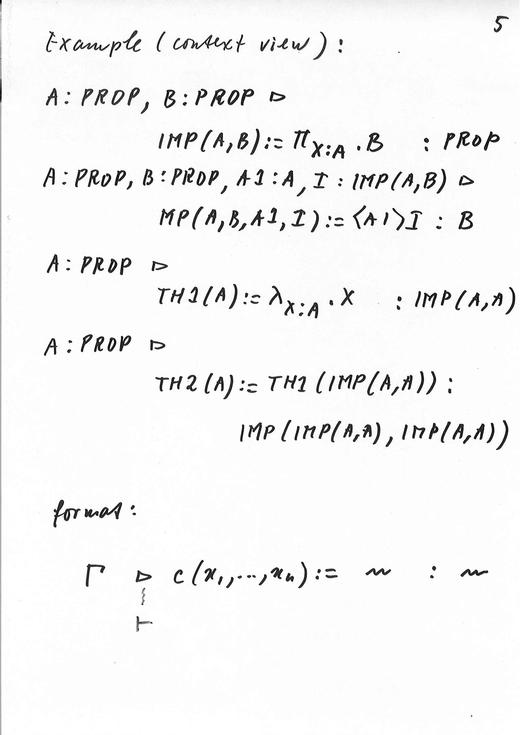 5
Example (context view):
A: PROP, B: PROP ▷
IMP(A,B) := Π_{X:A} . B : PROP
A: PROP, B: PROP, A1: A, I: IMP(A,B) ▷
MP(A,B,A1,I) := ⟨A1⟩I : B
A: PROP ▷
TH1(A) := λ_{X:A} . X : IMP(A,A)
A: PROP ▷
TH2(A) := TH1(IMP(A,A)) :
IMP(IMP(A,A), IMP(A,A))
format:
Γ ▷ c(x₁,...,xₙ) := ~ : ~
⊢